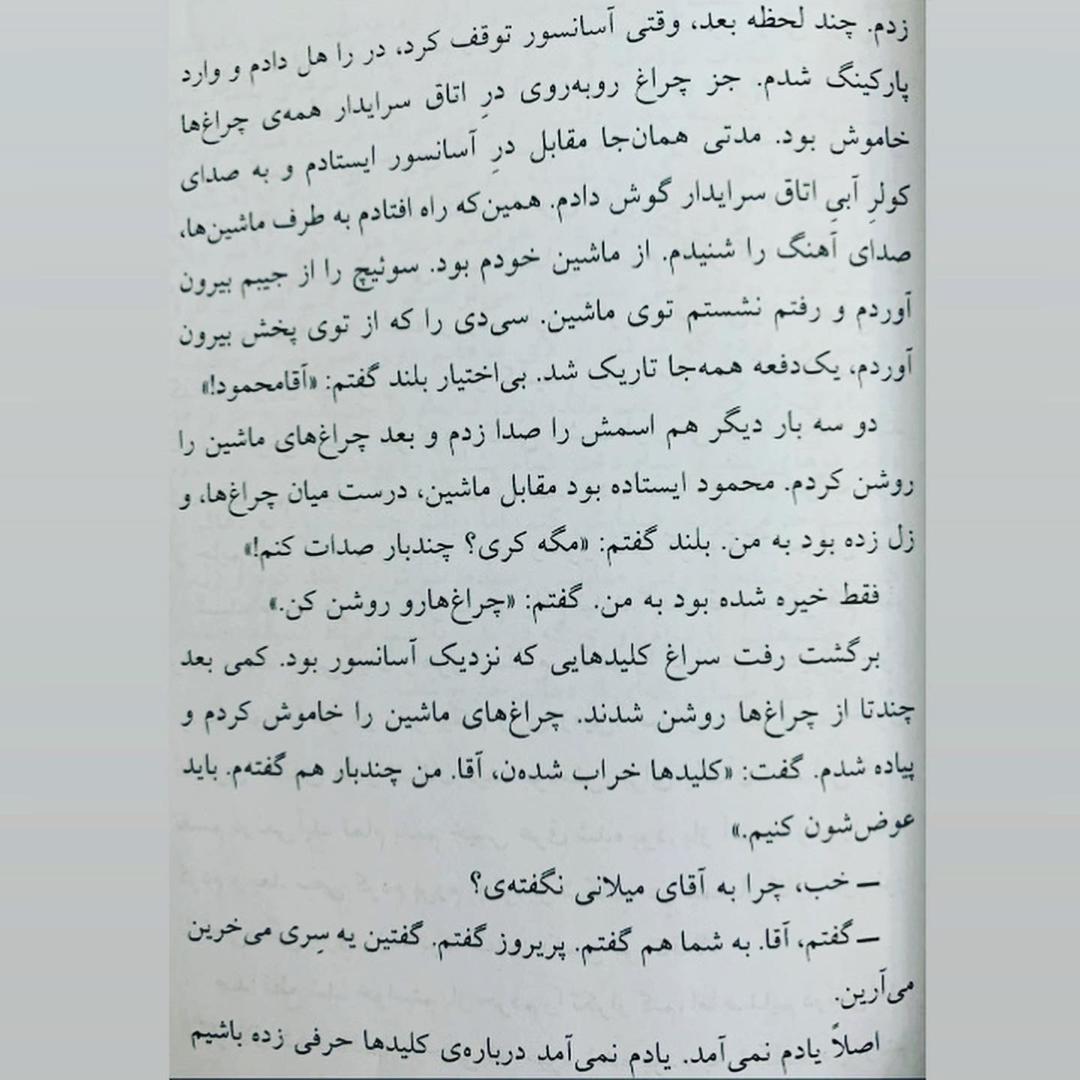 زدم. چند لحظه بعد، وقتی آسانسور توقف کرد، در را هل دادم و وارد
پارکینگ شدم. جز چراغ روبه‌روی درِ اتاق سرایدار همه‌ی چراغ‌ها
خاموش بود. مدتی همان‌جا مقابل درِ آسانسور ایستادم و به صدای
کولرِ آبیِ اتاق سرایدار گوش دادم. همین‌که راه افتادم به طرف ماشین‌ها،
صدای آهنگ را شنیدم. از ماشین خودم بود. سوئیچ را از جیبم بیرون
آوردم و رفتم نشستم توی ماشین. سی‌دی را که از توی پخش بیرون
آوردم، یک‌دفعه همه‌جا تاریک شد. بی‌اختیار بلند گفتم: «آقامحمود!»
دو سه بار دیگر هم اسمش را صدا زدم و بعد چراغ‌های ماشین را
روشن کردم. محمود ایستاده بود مقابل ماشین، درست میان چراغ‌ها، و
زل زده بود به من. بلند گفتم: «مگه کری؟ چندبار صدات کنم!»
فقط خیره شده بود به من. گفتم: «چراغ‌هارو روشن کن.»
برگشت رفت سراغ کلیدهایی که نزدیک آسانسور بود. کمی بعد
چندتا از چراغ‌ها روشن شدند. چراغ‌های ماشین را خاموش کردم و
پیاده شدم. گفت: «کلیدها خراب شده‌ن، آقا. من چندبار هم گفته‌م. باید
عوض‌شون کنیم.»
ـــ خب، چرا به آقای میلانی نگفته‌ی؟
ـــ گفتم، آقا. به شما هم گفتم. پریروز گفتم. گفتین یه سِری می‌خرین
می‌آرین.
اصلاً یادم نمی‌آمد. یادم نمی‌آمد درباره‌ی کلیدها حرفی زده باشیم